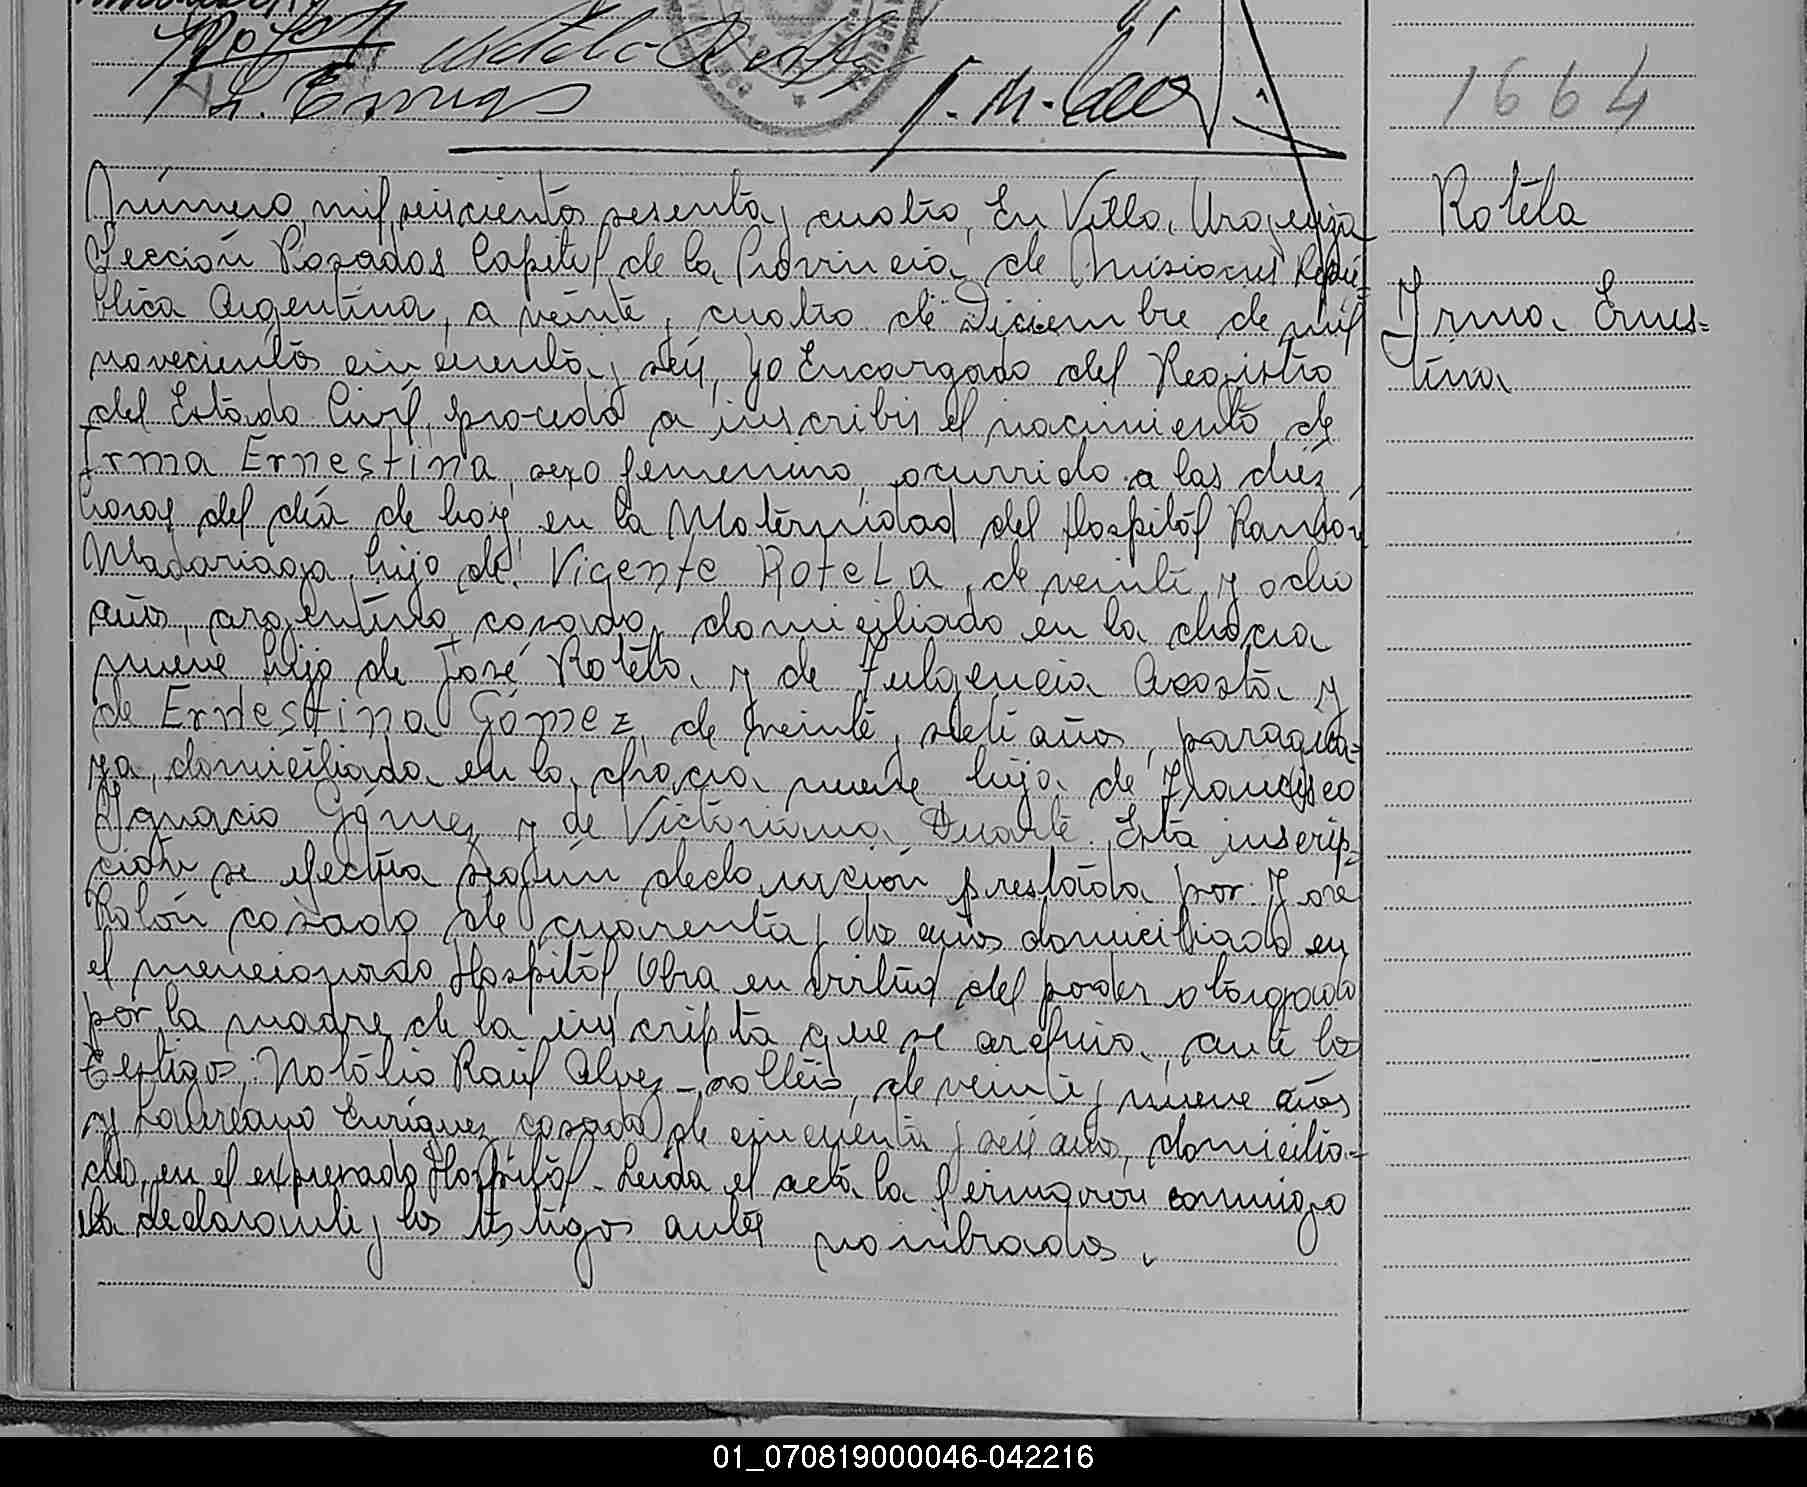 1664
Rotela
Irma Ernes=
tina
Número mil seiscientos sesenta y cuatro, En Villa Urquiza
Sección Posadas Capital de la Provincia de Misiones Repú=
blica Argentina, a veinte y cuatro de Diciembre de mil
novecientos cincuenta y seis, yo Encargado del Registro
del Estado Civil, procedo a inscribir el nacimiento de
Irma Ernestina, sexo femenino, ocurrido a las diéz
horas del día de hoy en la Maternidad del Hospital Ramón
Madariaga, hijo de: Vicente Rotela, de veinte y ocho
años, argentino, casado, domiciliado en la chacra
nueve hijo de José Rotela y de Fulgencia Acosta y
de Ernestina Gómez, de veinte y siete años, paragua=
ya, domiciliada en la chacra nueve hija de Francisco
Ignacio Gómez y de Victoriana Duarte. Esta inscrip=
ción se efectúa según declaración prestada por: José
Rolón casado de cuarenta y dos años domiciliado en
el mencionado Hospital, Obra en virtud del poder otorgado
por la madre de la inscripta que se archiva, ante los
testigos, Natálio Raúl Alvez - soltero, de veinte y nueve años
y Laureano Enríquez casado de cincuenta y seis años, domicilia=
do, en el expresado Hospital - Leída el acta la firmaron conmigo
la declarante y los testigos antes nombrados.
01_070819000046-042216